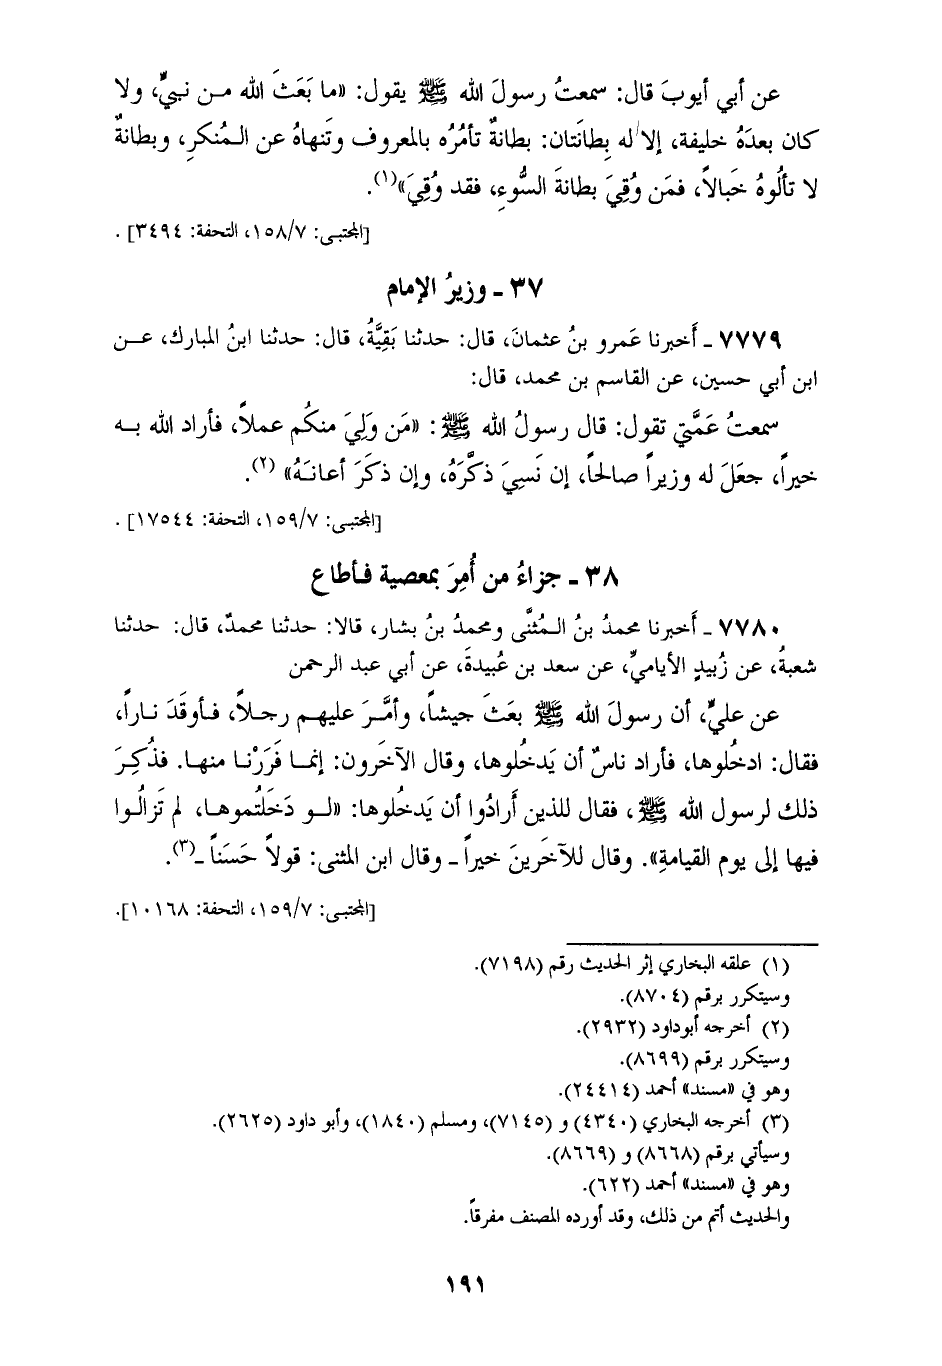 عن أبي أيوبَ قال: سمعتُ رسولَ الله ﷺ يقول: «ما بَعَثَ الله مـن نبيٍّ، ولا
كان بعدَهُ خليفة، إلا له بِطانَتان: بطانةٌ تأمُرُه بالمعروف وتَنهاهُ عن الـمُنكرِ، وبطانةٌ
لا تألُوهُ خَبالاً، فمَن وُقِيَ بطانةَ السُّوءِ، فقد وُقِيَ»(١).
[المجتبى: ١٥٨/٧، التحفة: ٣٤٩٤] .
٣٧ ـ وزيرُ الإمام
٧٧٧٩ ـ أخبرنا عَمرو بنُ عثمانَ، قال: حدثنا بَقِيَّةُ، قال: حدثنا ابنُ المبارك، عـن
ابن أبي حسين، عن القاسم بن محمد، قال:
سمعتُ عَمَّتي تقول: قال رسولُ الله ﷺ: «مَن وَلِيَ منكُم عملاً، فأراد الله بـه
خيراً، جعَلَ له وزيراً صالحاً، إن نَسِيَ ذكَّرَهُ، وإن ذكَرَ أعانَـهُ» (٢).
[المجتبى: ١٥٩/٧، التحفة: ١٧٥٤٤] .
٣٨ ـ جزاءُ من أُمِرَ بمعصية فـأطاع
٧٧٨٠ ـ أخبرنا محمدُ بنُ الـمُثنَّى ومحمدُ بنُ بشار، قالا: حدثنا محمدٌ، قال: حدثنا
شعبةُ، عن زُبيدٍ الأياميِّ، عن سعد بن عُبيدةَ، عن أبي عبد الرحمن
عن عليٍّ، أن رسولَ الله ﷺ بعَثَ جيشاً، وأمَّرَ عليهـم رجـلاً، فـأوقَدَ نـاراً،
فقال: ادخُلوها، فأراد ناسٌ أن يَدخُلوها، وقال الآخَرون: إنمـا فَرَرْنـا منهـا. فذُكِـرَ
ذلك لرسول الله ﷺ، فقال للذين أَرادُوا أن يَدخُلوها: «لـو دَخَلتُموهـا، لم تَزالُـوا
فيها إلى يوم القيامةِ». وقال للآخَرينَ خيراً ـ وقال ابن المثنى: قولاً حَسَناً ـ(٣).
[المجتبى: ١٥٩/٧، التحفة: ١٠١٦٨].
(١) علقه البخاري إثر الحديث رقم (٧١٩٨).
وسيتكرر برقم (٨٧٠٤).
(٢) أخرجه أبوداود (٢٩٣٢).
وسيتكرر برقم (٨٦٩٩).
وهو في «مسند» أحمد (٢٤٤١٤).
(٣) أخرجه البخاري (٤٣٤٠) و (٧١٤٥)، ومسلم (١٨٤٠)، وأبو داود (٢٦٢٥).
وسيأتي برقم (٨٦٦٨) و (٨٦٦٩).
وهو في «مسند» أحمد (٦٢٢).
والحديث أتم من ذلك، وقد أورده المصنف مفرقاً.
١٩١